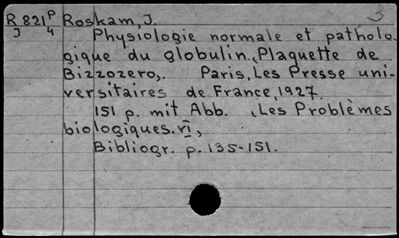 3
R 821 P Roskam, J.
J 4 Physiologie normale et patholo-
gique du globulin. Plaquette de
Bizzozero,. Paris, Les Presse uni-
versitaires de France, 1927.
151 p. mit Abb. (Les Problèmes
biologiques. VI,
Bibliogr. p. 135-151.